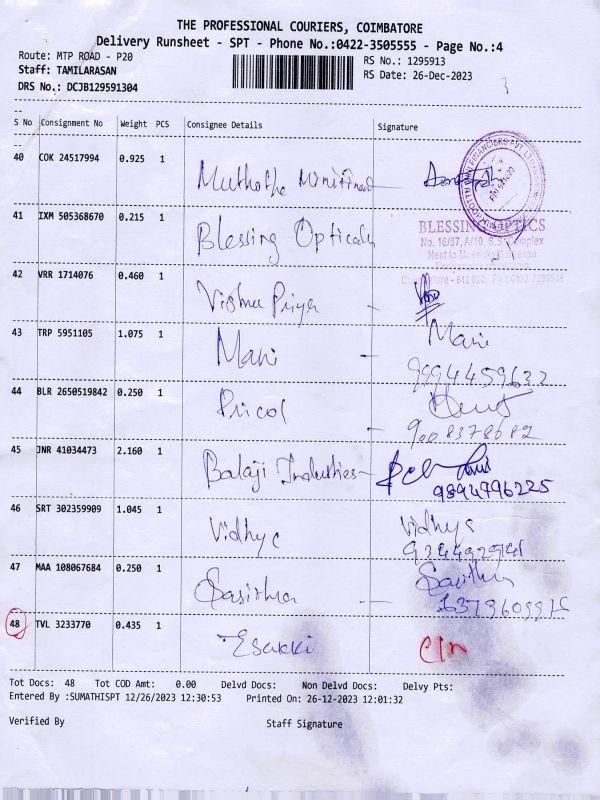 THE PROFESSIONAL COURIERS, COIMBATORE
Delivery Runsheet - SPT - Phone No.:0422-3505555 - Page No.:4
Route: MTP ROAD - P20
RS No.: 1295913
Staff: TAMILARASAN
RS Date: 26-Dec-2023
DRS No.: DCJB129591304
S No Consignment No Weight PCS Consignee Details Signature
40 COK 24517994 0.925 1 Muthotha Minifinad
41 IXM 505368670 0.215 1 Blessing Opticals
BLESSING OPTICS
No. 16/87, A/10, S.S. Complex
Next to
Coimbatore - 641 020.
42 VRR 1714076 0.460 1 Vishnu Priya -
43 TRP 5951105 1.075 1 Mani - Mani
9994459632
44 BLR 2650519842 0.250 1 Pricol -
45 JNR 41034473 2.160 1 Balaji Industries -
9894796225
46 SRT 302359909 1.045 1 Vidhya Vidhya
47 MAA 108067684 0.250 1 Sasirha -
48 TVL 3233770 0.435 1 Esakki
Tot Docs: 48 Tot COD Amt: 0.00 Delvd Docs: Non Delvd Docs: Delvy Pts:
Entered By :SUMATHISPT 12/26/2023 12:30:53 Printed On: 26-12-2023 12:01:32
Verified By Staff Signature